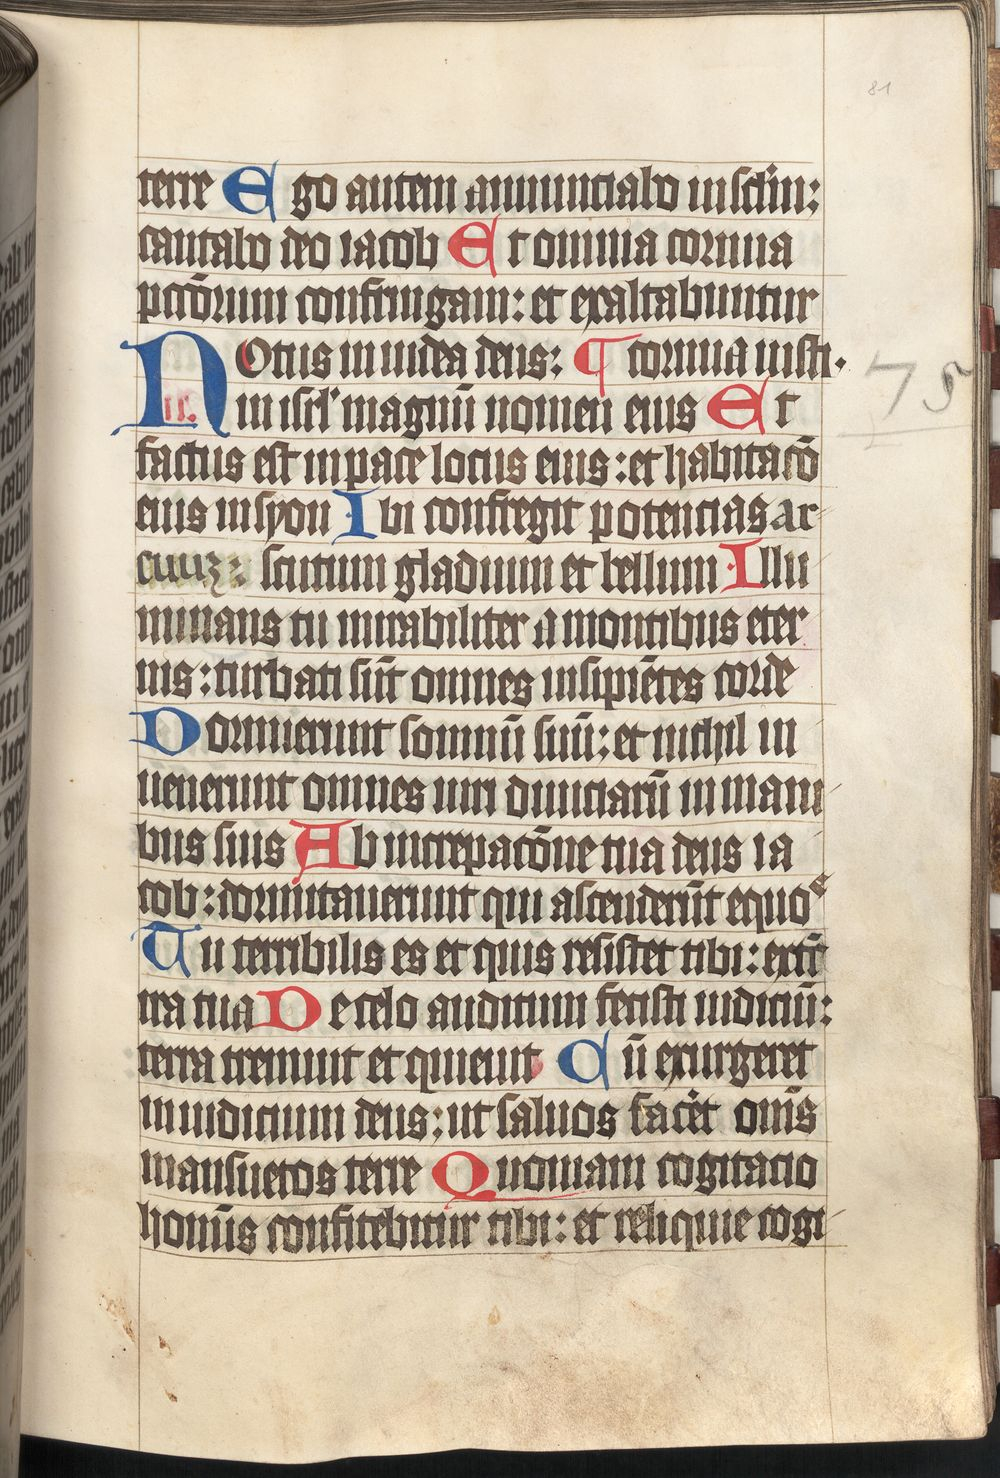 81
terre Ego autem annunciabo in sclm̄:
cantabo deo iacob Et omnia cornua
pctōrum confringam: et exaltabuntur
Notus in iudea deus: ¶ cornua iusti.
75
in isrl' magnū nomen eius Et
factus est in pace locus eius: et habitacō
eius in syon Ibi confregit potencias ar
cuuꝫ: scutum gladium et bellum Illu
minans tu mirabiliter a montibus eter
nis: turbati sūt omnes insipiētes corde
Dormierunt somnū suū: et nichil in
uenerunt omnes uiri diuiciarū in mani
bus suis Ab increpacōne tua deus ia
cob: dormitauerunt qui ascenderūt equos
Tu terribilis es et quis resistet tibi: extc̄
ira tua De celo auditum fecisti iudiciū:
terra tremuit et quieuit Cū exurgeret
in iudicium deus: ut saluos facēt om̄s
mansuetos terre Quoniam cogitacio
homīs confitebitur tibi: et reliquie cogi